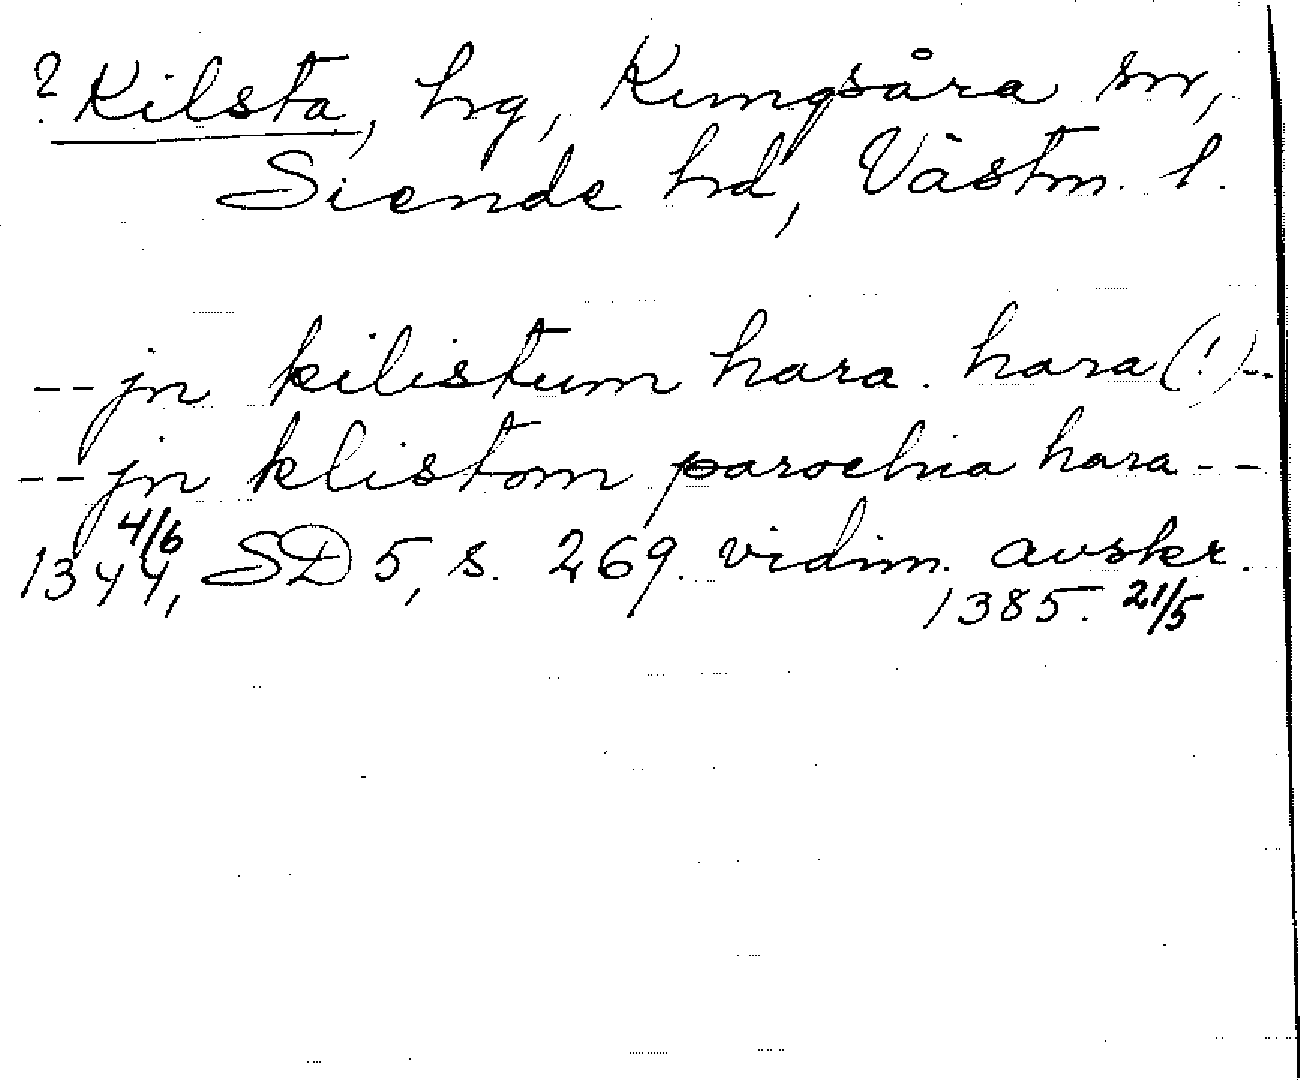 ? Kilsta, hg, Kungsåra sn,
Siende hd, Västm. l.
-- jn kilistum hara. hara (!) --
-- jn klistom parochia hara --
1344, 4/6 SD 5, s. 269. vidim. avskr.
1385. 21/5